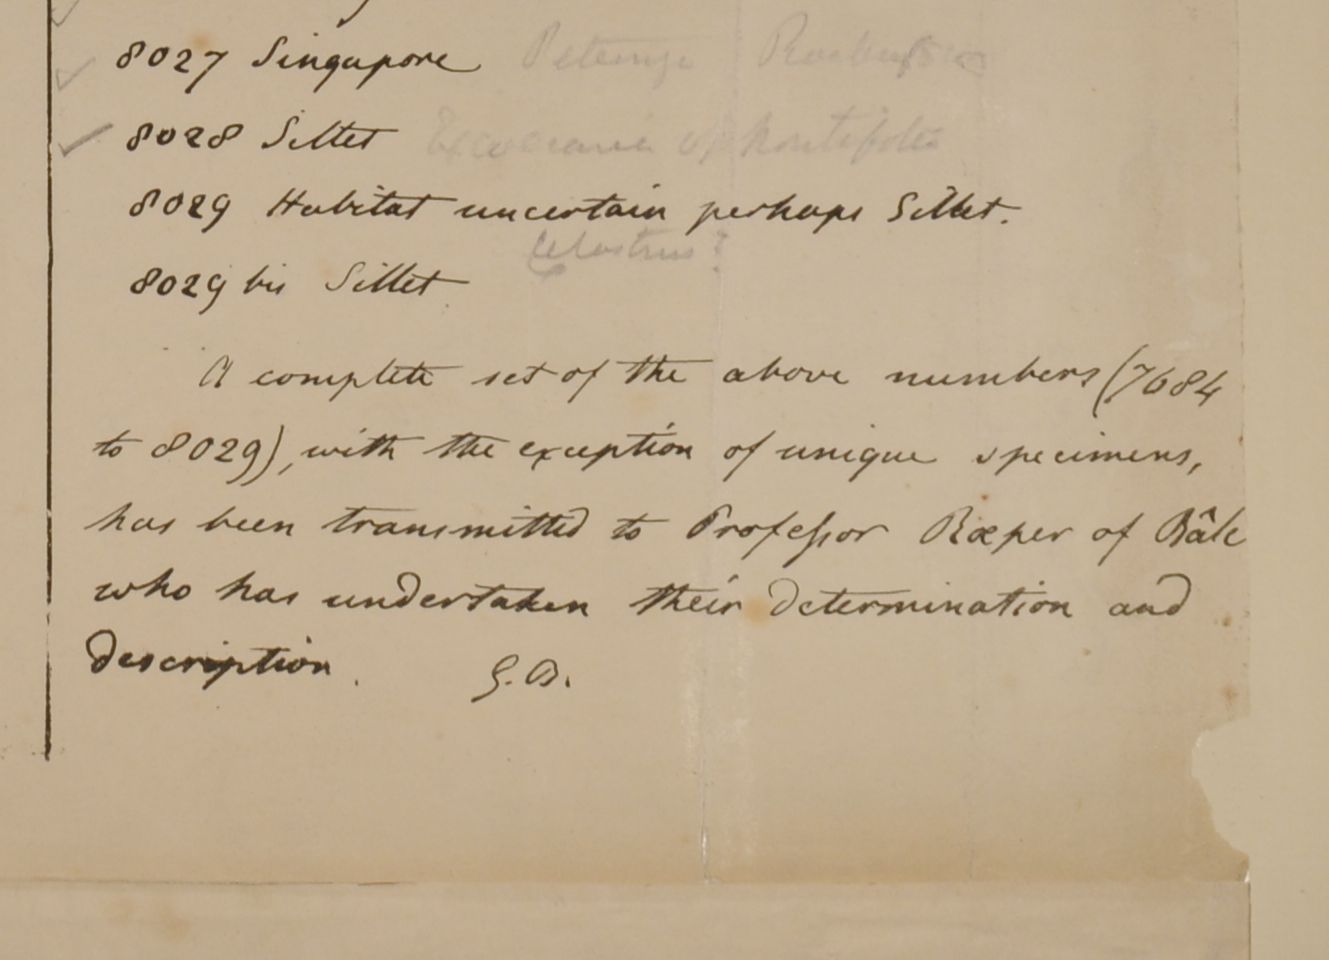 8027 Singapore
8028 Sillet
8029 Habitat uncertain perhaps Sillet.
Celastrus?
8029 bis Sillet
A complete set of the above numbers (7684
to 8029), with the exception of unique specimens,
has been transmitted to Profeſsor Rœper of Bâle
who has undertaken their determination and
description. G.B.